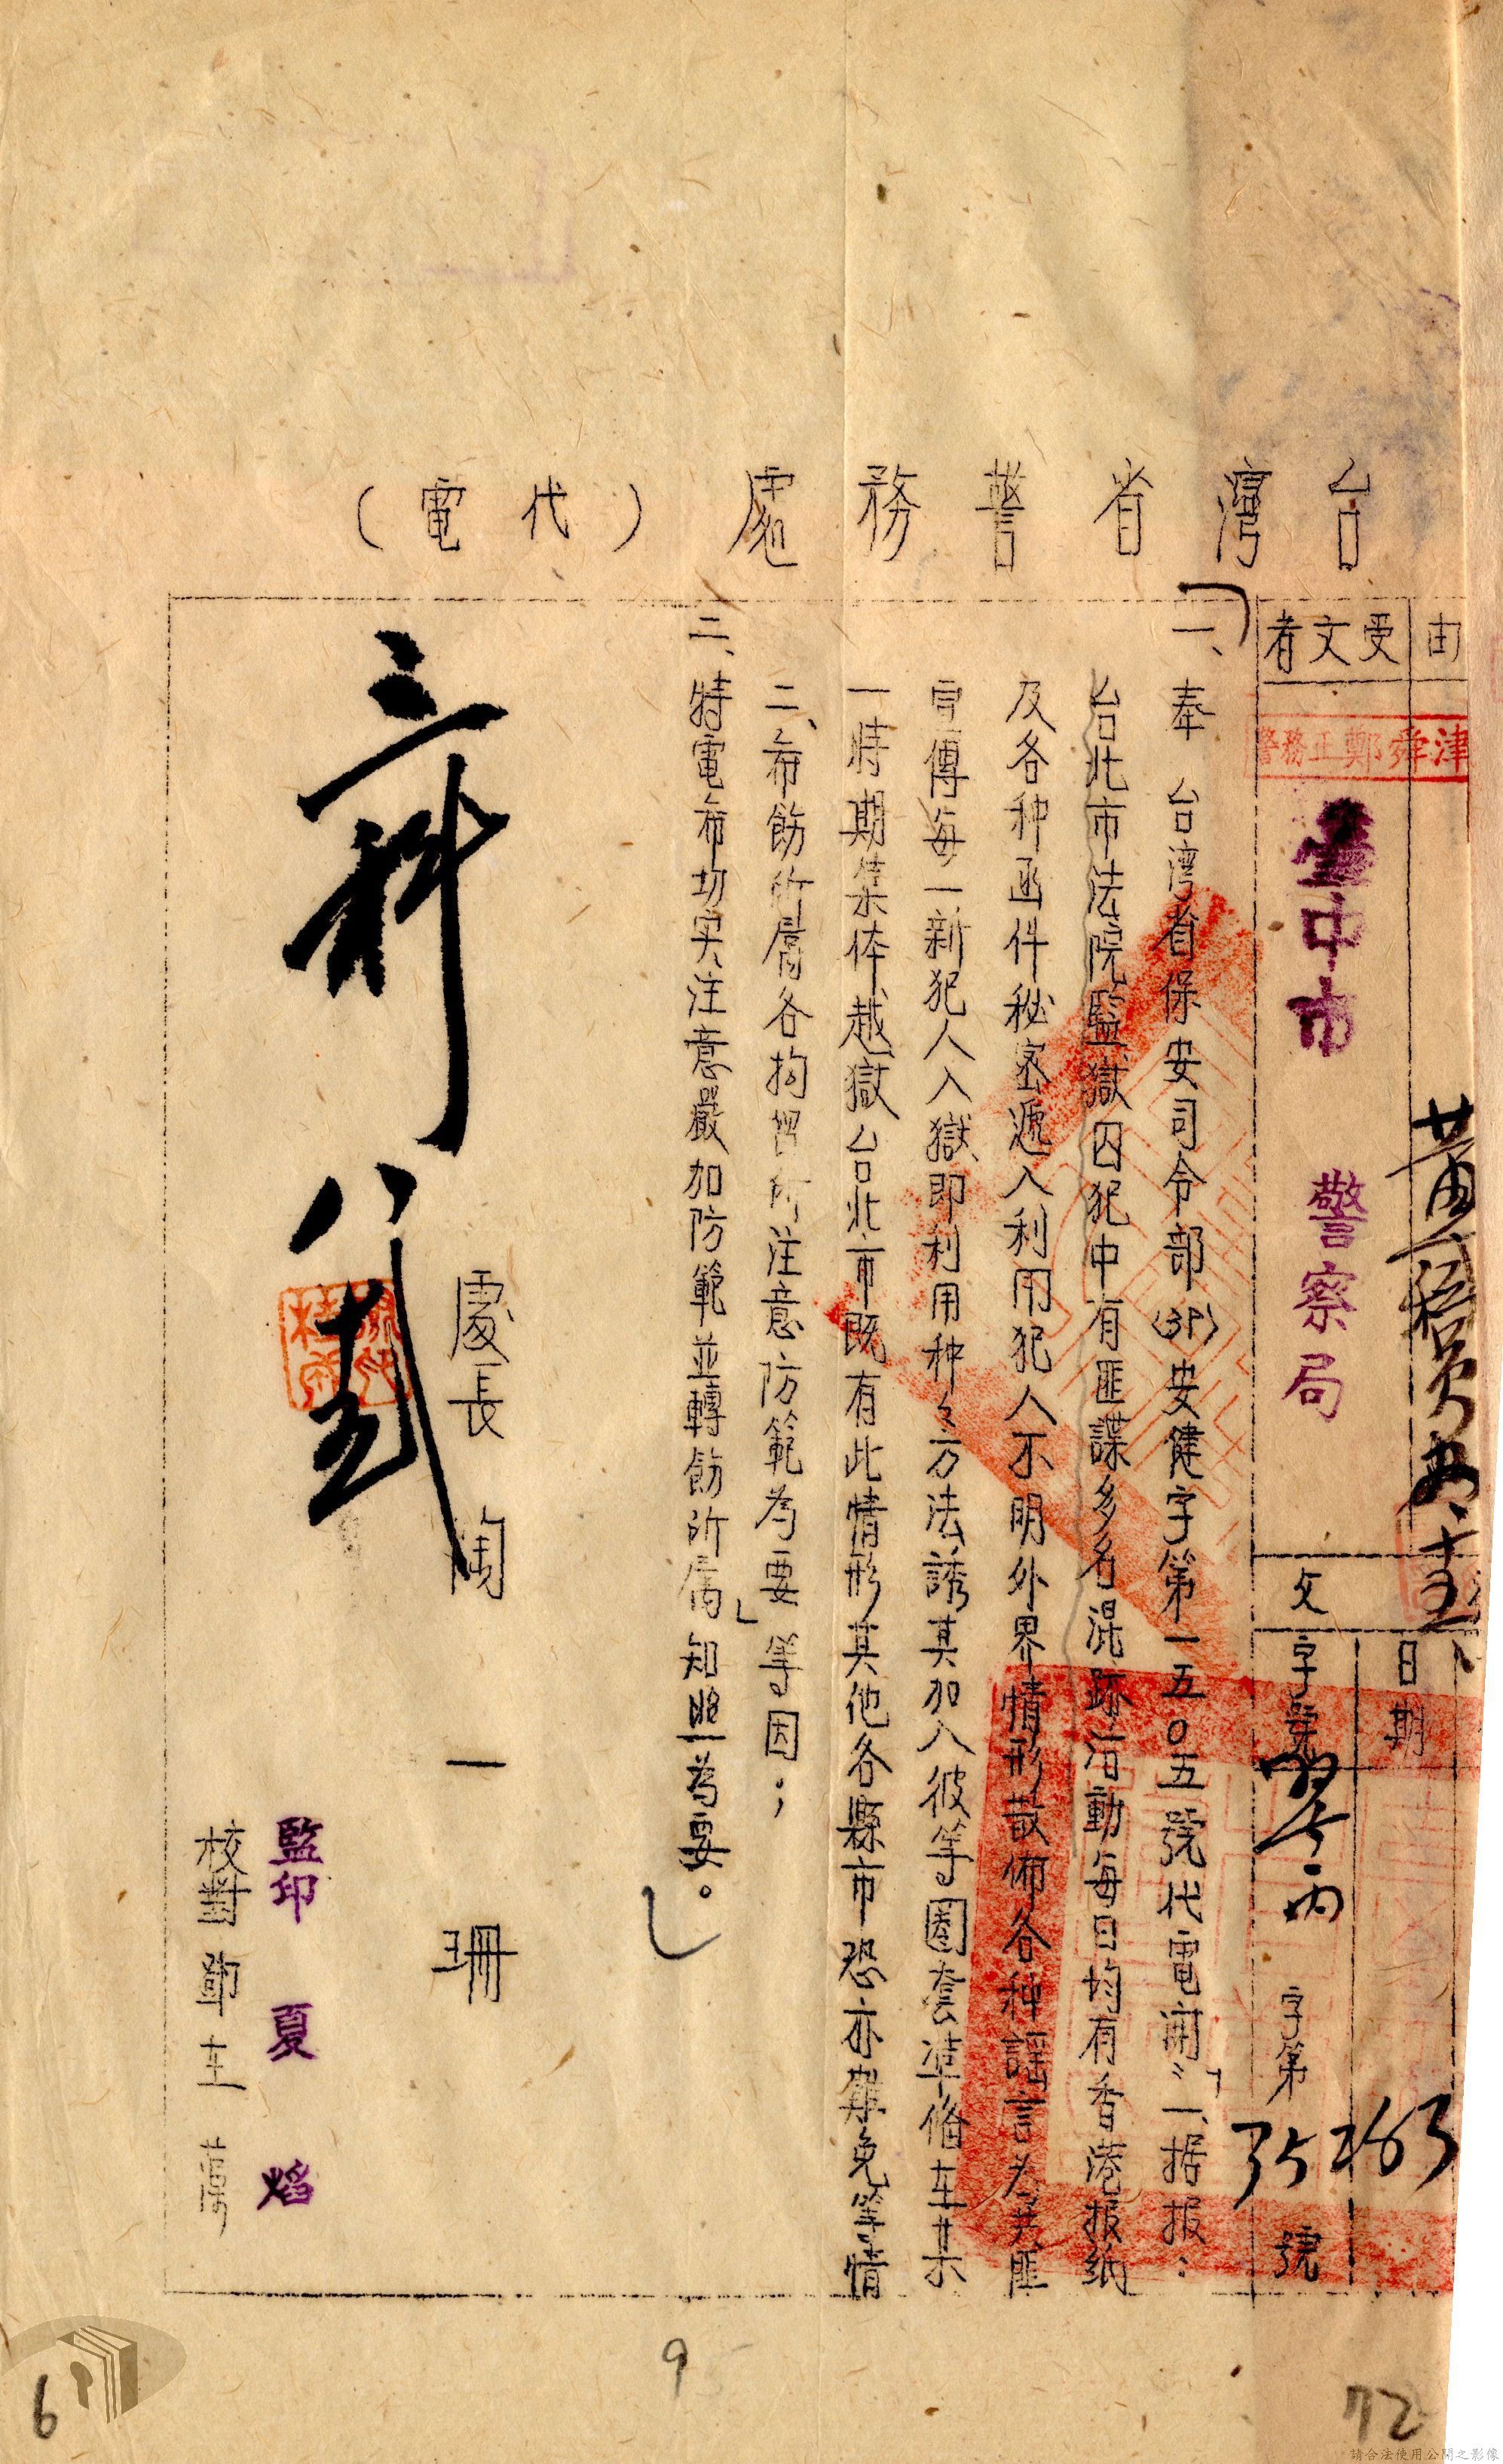 台灣省警務處(代電)
由
受文者
警務正鄭舜津
臺中市 警察局
日期
文
字第
丙
字第35263號
一、奉 台灣省保安司令部(39)安健字第一五〇五號代電開:「一、据报:
台北市法院監獄囚犯中有匪諜多名混跡活動每日均有香港报纸
及各种函件秘密遞入利用犯人不明外界情形散佈各种謠言为共匪
宣傳每一新犯人入獄即利用种々方法誘其加入彼等圈套準偹在某
一時期集体越獄台北市既有此情形其他各縣市恐亦难免等情
二、希飭所屬各拘留所注意防範為要」等因;
二、特電希切实注意嚴加防範並轉飭所屬知照為要。
處長 陶一珊
三科 八
監印 夏
校對 鄧
9
6
72
請合法使用公開之影像